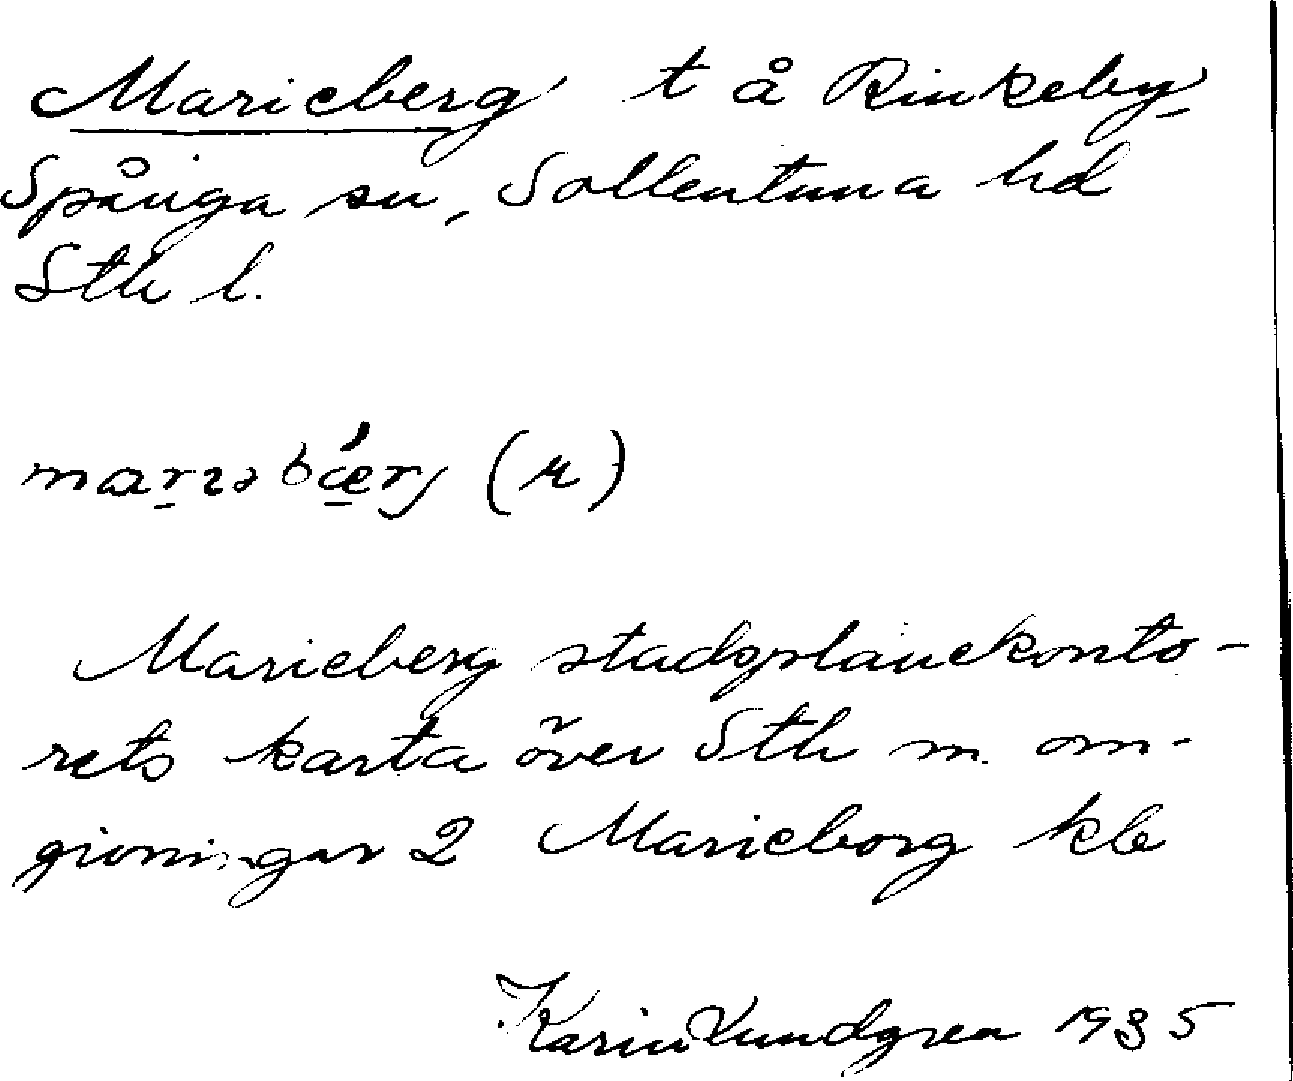 Marieberg t å Rinkeby
Spånga sn, Sollentuna hd
Sth l.
marɪəbǽrj (r)
Marieberg stadsplanekonto-
rets karta över Sth m. om-
givningar 2 Marieborg kb
Karin Lundgren 1935